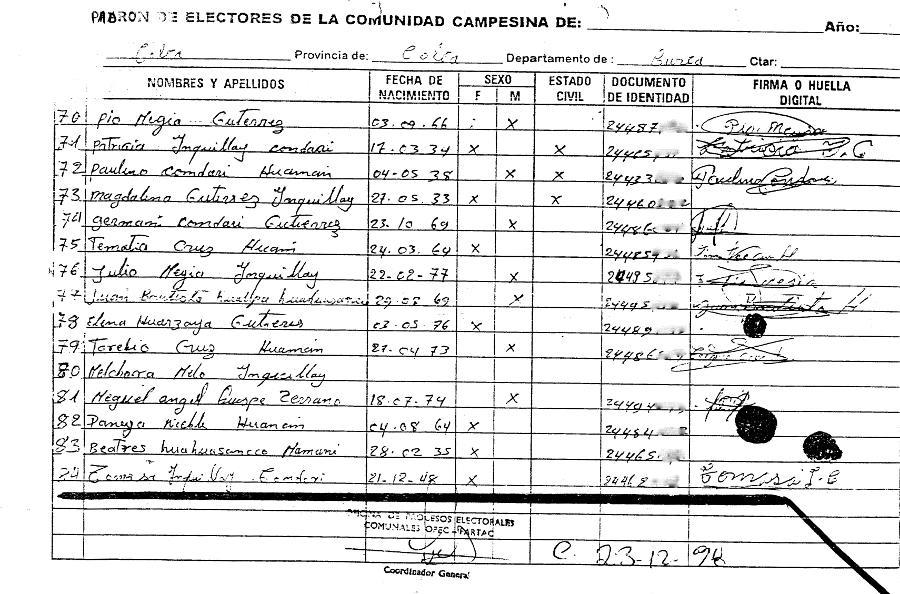 PADRON DE ELECTORES DE LA COMUNIDAD CAMPESINA DE: Año:
Provincia de: Departamento de: Ctar:
NOMBRES Y APELLIDOS FECHA DE NACIMIENTO SEXO F M ESTADO CIVIL DOCUMENTO DE IDENTIDAD FIRMA O HUELLA DIGITAL
70 Pio Megia Guterrez 03.09.66 X 24487
71 patricia Inquillay condori 17.03.34 X X 24465
72 paulino condori Huaman 04-05 38 X X 24433 Paulino Condori
73 magdalina Gutirrez Inquillay 27.05.33 X X 24460
74 german condori Gutierrez 23.10 69 X 24486
75 Cruz Huaman 24.03.64 X 24485
76 Julio Megia Inquillay 22-02-77 X 24495
77 Juan Bautista huallpa 29.08 69 X 24495
78 Elena Huarzaya Guterres 03.05.76 X 24489
79 Torebio Cruz Huaman 27.04 73 X 24486
80 Melchora Melo Inquillay
81 Meguel angel Quespe Zerrano 18.07.74 X 24494
82 Huaman 04.08 64 X 24484
83 Beatres huahuasoncco Mamani 28.02 35 X 24465
Inquillay Condori 21-12-48 X 24468 Tomasa I.C
OFICINA DE PROCESOS ELECTORALES
COMUNALES OPEC-PARTAC
C. 23-12-98
Coordinador General